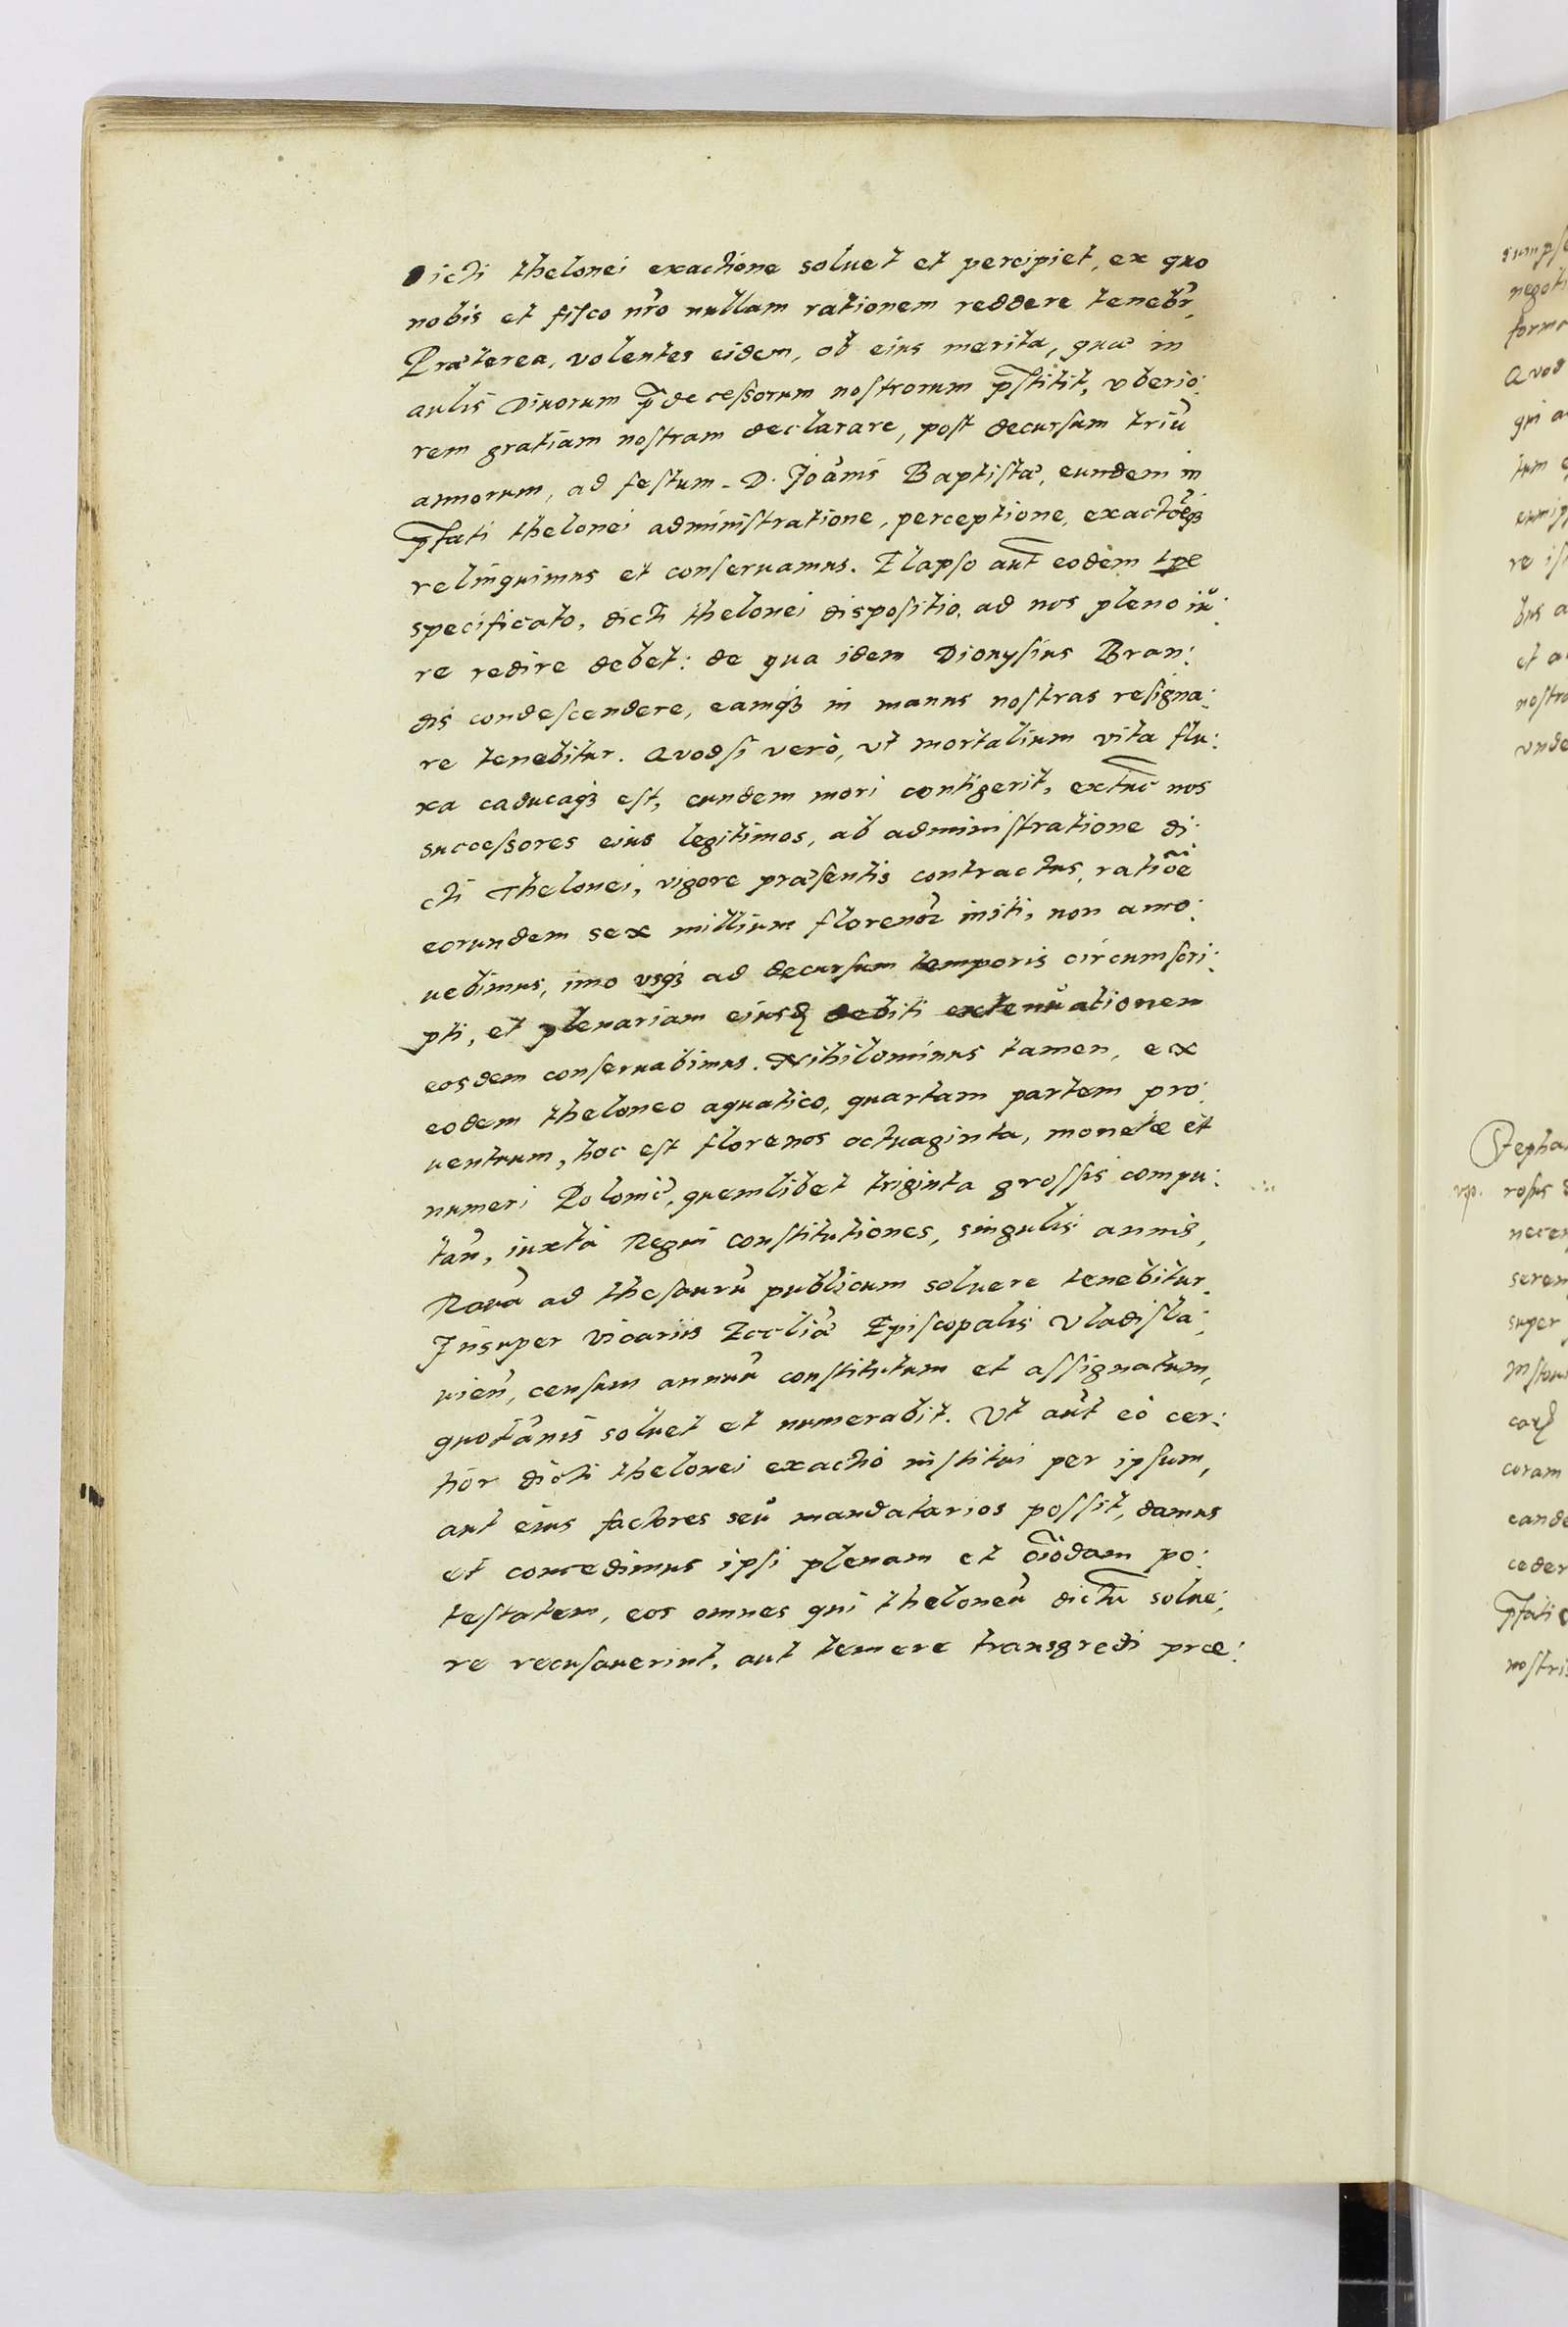 Dicti thelonei exactione soluet et percipiet, ex quo
nobis et fisco nr̃o nullam rationem reddere tenebr̃,
Præterea, volentes eidem, ob eius merita, quæ in
aulis Diuorum p̃decessorum nostrorum p̃stitit, vberio:
rem gratiam nostram declarare, post decursum triũ
annorum, ad festum D. Joãnis Baptistæ, eundem in
p̃fati thelonei administratione, perceptione, exactõeq3
relinquimus et conseruamus. Elapso aut̃ eodem tp̃e
specificato, dicti thelonei dispositio, ad nos pleno iu:
re redire debet: de qua idem Dionysius Bran:
dis condescendere, eamq3 in manus nostras resigna:
re tenebitur. Quodsi verò, vt mortalium vita flu:
xa caducaq3 est, eundem mori contigerit, extũc nos
successores eius legitimos, ab administratione di:
cti Thelonei, vigore præsentis contractus, ratiõe
eorundem sex millium florenoꝝ initi, non amo:
uebimus, imo vsq3 ad decursum temporis circumscri:
pti, et plenariam eiusdꝫ debiti extenuationem
eosdem conseruabimus. Nihilominus tamen, ex
eodem theloneo aquatico, quartam partem pro:
uentuum, hoc est florenos octuaginta, monetæ et
numeri Polonic̃, quemlibet triginta grossis compu:
tan̄, iuxta Regni constitutiones, singulis annis,
Rauã ad thesaurũ publicum soluere tenebitur.
Insuper vicariis Eccliæ Episcopalis Vladisla:
uien̄, censum annuũ constitutum et assignatum,
quotãnis soluet et numerabit. Vt aut̃ eò cer:
tior dicti thelonei exactio institui per ipsum,
aut eius factores seu mandatarios possit, damus
et concedimus ipsi plenam et oĩodam po:
testatem, eos omnes qui theloneũ dictũ solue:
re recusauerint, aut temere transgredi præ:
sumpse
negoti
forma
Quod
qui a
re is
bus a
et a
nostro
vnde
Stepha
rosus
necen
seren
super
coram
eande
ceder
p̃fati
nostris